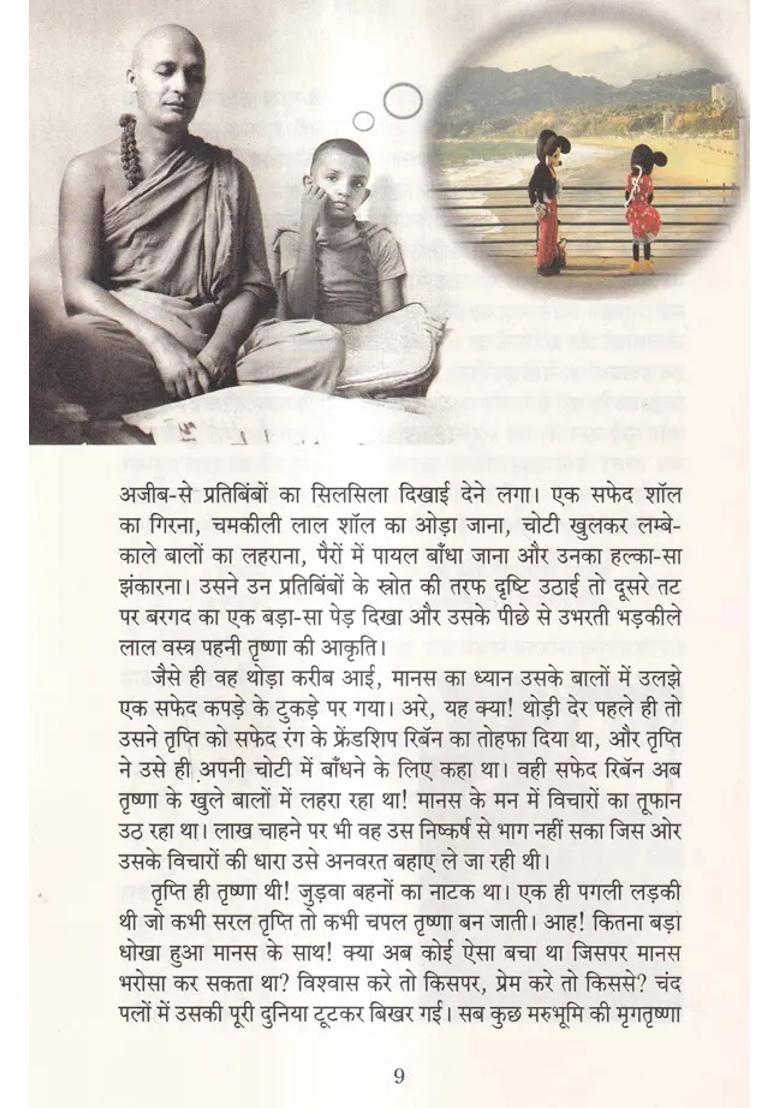 अजीब-से प्रतिबिंबों का सिलसिला दिखाई देने लगा। एक सफेद शॉल
का गिरना, चमकीली लाल शॉल का ओड़ा जाना, चोटी खुलकर लम्बे-
काले बालों का लहराना, पैरों में पायल बाँधा जाना और उनका हल्का-सा
झंकारना। उसने उन प्रतिबिंबों के स्रोत की तरफ दृष्टि उठाई तो दूसरे तट
पर बरगद का एक बड़ा-सा पेड़ दिखा और उसके पीछे से उभरती भड़कीले
लाल वस्त्र पहनी तृष्णा की आकृति।
जैसे ही वह थोड़ा करीब आई, मानस का ध्यान उसके बालों में उलझे
एक सफेद कपड़े के टुकड़े पर गया। अरे, यह क्या! थोड़ी देर पहले ही तो
उसने तृप्ति को सफेद रंग के फ्रेंडशिप रिबॅन का तोहफा दिया था, और तृप्ति
ने उसे ही अपनी चोटी में बाँधने के लिए कहा था। वही सफेद रिबॅन अब
तृष्णा के खुले बालों में लहरा रहा था! मानस के मन में विचारों का तूफान
उठ रहा था। लाख चाहने पर भी वह उस निष्कर्ष से भाग नहीं सका जिस ओर
उसके विचारों की धारा उसे अनवरत बहाए ले जा रही थी।
तृप्ति ही तृष्णा थी! जुड़वा बहनों का नाटक था। एक ही पगली लड़की
थी जो कभी सरल तृप्ति तो कभी चपल तृष्णा बन जाती। आह! कितना बड़ा
धोखा हुआ मानस के साथ! क्या अब कोई ऐसा बचा था जिसपर मानस
भरोसा कर सकता था? विश्वास करे तो किसपर, प्रेम करे तो किससे? चंद
पलों में उसकी पूरी दुनिया टूटकर बिखर गई। सब कुछ मरुभूमि की मृगतृष्णा
9